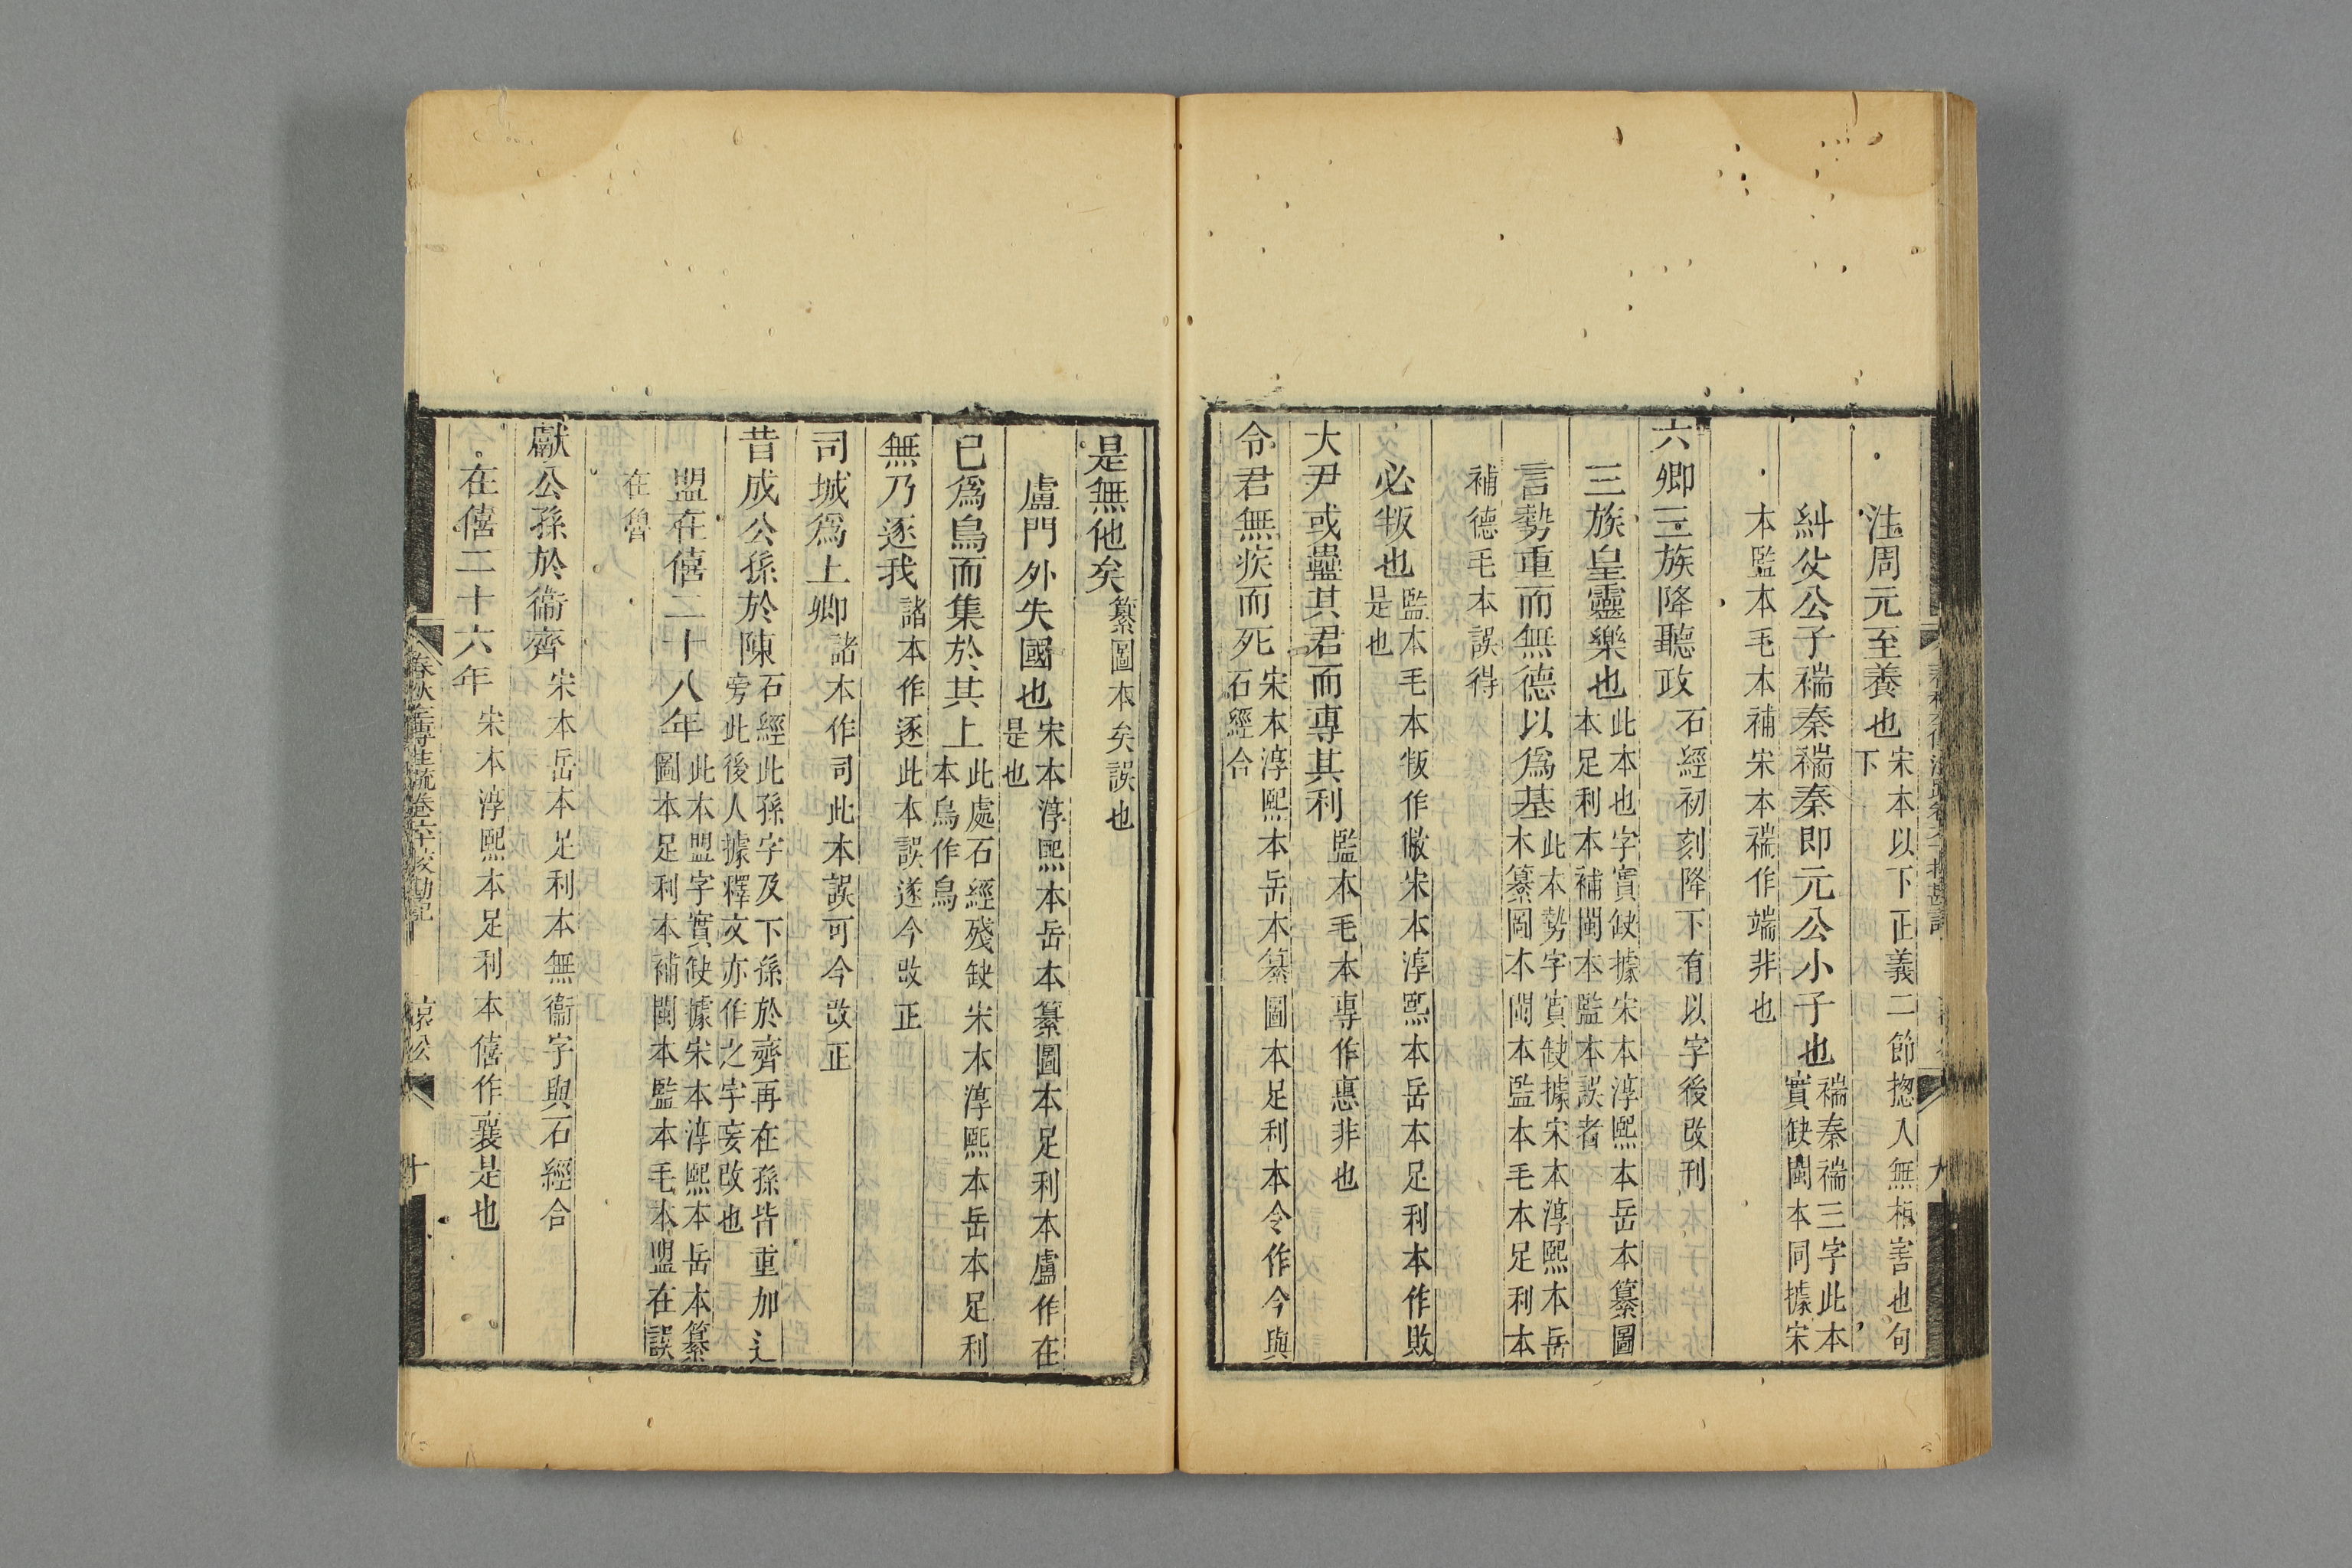 注周元至養也宋本以下正義二節揔入無相害也句
下
糾父公子褍秦褍秦即元公小子也褍秦褍三字此本
實缺閩本同據宋
本監本毛本補宋本褍作端非也
六卿三族降聽政石經初刻降下有以字後改刊
三族皇靈樂也此本也字實缺據宋本淳熙本岳本纂圖
本足利本補閩本監本誤者
言勢重而無德以爲基此本勢字實缺據宋本淳熙本岳
本纂圖本閩本監本毛本足利本
補德毛本誤得
必叛也監本毛本叛作僘宋本淳熙本岳本足利本作敗
是也
大尹或蠱其君而專其利監本毛本專作惠非也
令君無疾而死宋淳熙本岳本纂圖本足利本令作今與
石經合
是無他矣纂圖本矣誤也
盧門外失國也宋本淳熙本岳本纂圖本足利本盧作在
是也
已爲烏而集於其上此處石經殘缺宋本淳熙本岳本足利
本烏作鳥
無乃逐我諸本作逐此本誤遂今改正
司城爲上卿諸本作司此本誤可今改正
昔成公孫於陳石經此孫字及下孫於齊再在孫皆重加辶
旁此後人據釋文亦作之字妄改也
盟在僖二十八年此本盟字實缺據宋本淳熙本岳本纂
圖本足利本補閩本監本毛本盟在誤
在魯
獻公孫於衞齊宋本岳本足利本無衞字與石經合
在僖二十六年宋本淳熙本足利本僖作襄是也
春秋左傳注疏卷六十校勘記
十